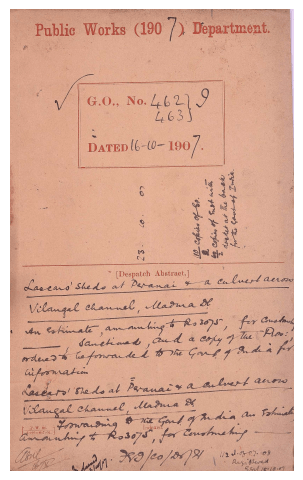 Public Works (1907) Department.
G.O., No. 462} 9
463}
DATED 16-10-1907.
23 10 07
10 copies of Est
[Despatch Abstract.]
Lascars' sheds at Peranai & a culvert across
Vilangal channel, Madura Dt
An Estimate, amounting to Rs 3075, for constructing
Sanctioned, and a copy of the Proc:
ordered to be forwarded to the Govt of India for
information
Lascars' sheds at Peranai & a culvert across
Vilangal channel, Madura Dt
Forwarding to the Govt of India an Estimate
amounting to Rs 3075, for constructing